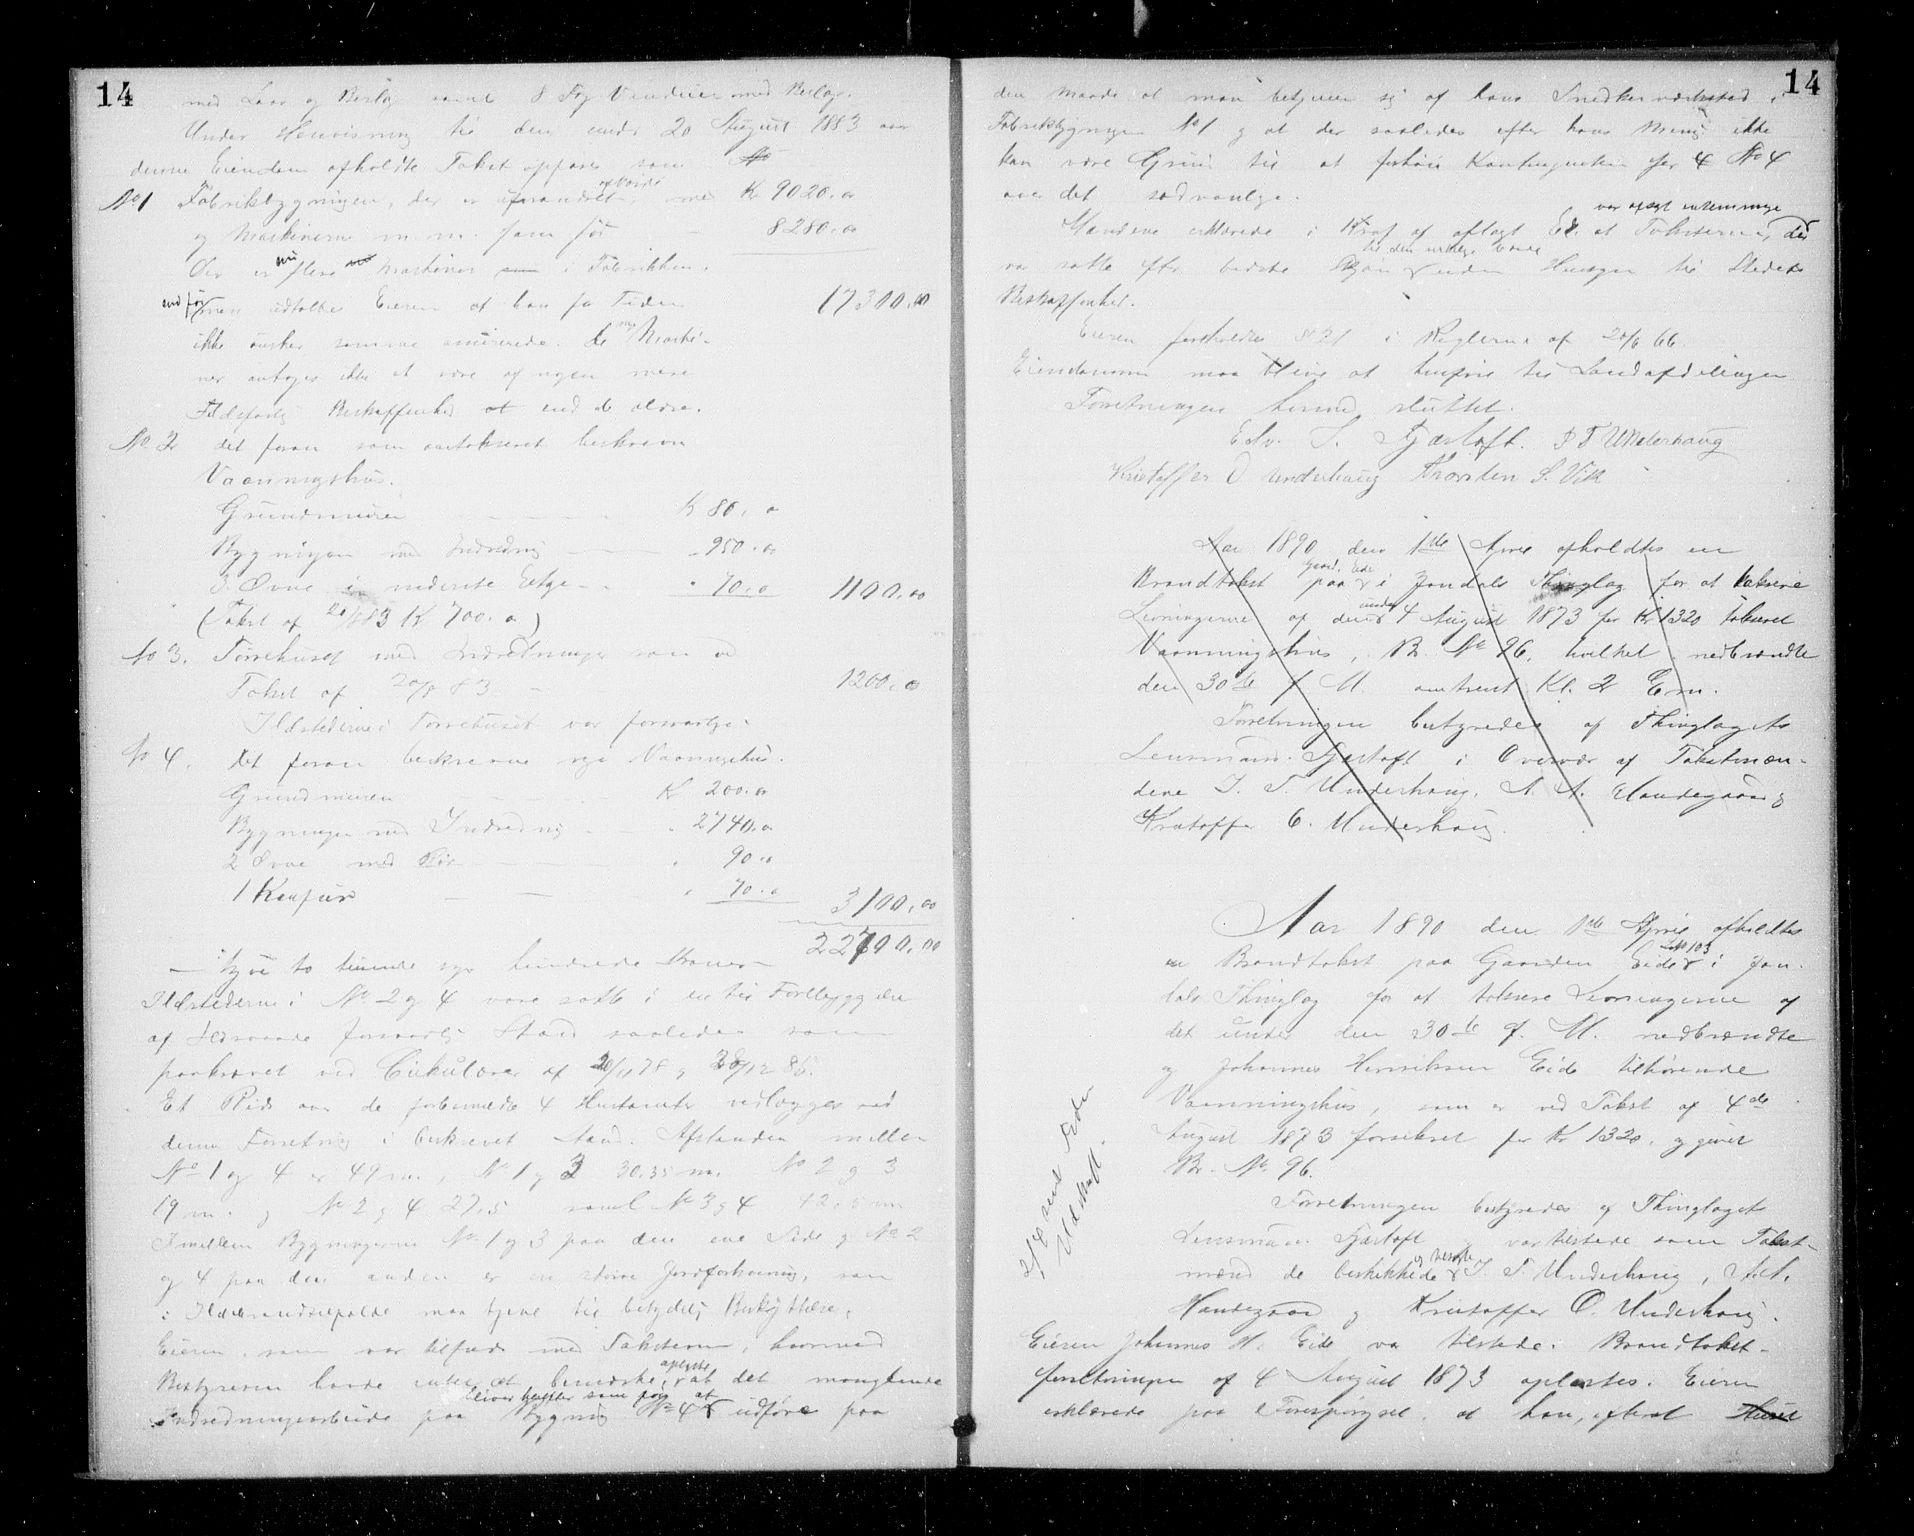 14
med Laas og Beslag samt 8 Fag Vinduer med Beslag.
Under Henvisning til den under 20 August 1883 over
denne Eiendom afholdte Takst opføres som
No 1 Fabrikbygningen, der er uforandret, med Kr 9020.00
og Maskinerne m.m. som før - 8280.00
Der er nu flere Maskiner i Fabrikken.
end før, men udtalte Eieren at han for Tiden 17300.00
ikke ønsker samme assurerede. De nye Maski-
ner antages ikke at være af nogen mere
Ildsfarlig Beskaffenhed end de ældre.
No 2 det foran som omtakseret beskrevne
Vaaningshus.
Grundmuren K 80.0
Bygningen med Indredning - 950.00
3 Ovne i nederste Etage - 70.0 1100.00
(Takst af 20/8 83 K 700.0)
No 3. Tørrehuset med Indredninger som ved
Takst af 20/8 83 - 1200.00
Ildstederne i Tørrehuset var forsvarlige.
No 4. Det foran beskrevne nye Vaaningshus.
Grundmuren Kr 200.00
Bygningen med Indredning - 2740.00
2 Ovne med Rør 90.0
1 Komfur - 70.0
3100.00
22700.00
- tyve to tusinde syv hundrede Kroner -
Ildstederne i No 2 og 4 vare satte i en til Forebyggelse
af Ildsvaade forsvarlig Stand saaledes som
paakrævet ved Cirkulærer af
Et Rids over de forbemeldte 4 Hustomter vedlægges ved
denne Forretning i beskrevet Stand. Afstanden mellem
No 1 og 4 er 49 m., No 1 og 3 30.35 m. No 2 og 3
19 m. og No 2 og 4 27,5 samt No 3 og 4 42,5 m
Imellem Bygningerne No 1 og 3 paa den ene Side og No 2
og 4 paa den anden er en større Jordforhøining, som
i Ildebrandstilfælde maa tjene til betydelig Beskyttelse.
Eieren, som var tilfreds med Taksterne, hvorved
oplyste
Bestyreren havde intet at bemærke, at det manglende
bliver heller som før at
Indredningsarbeide paa Bygning No 4 udføre paa
14
den Maade at man betjener sig af hans Snedkerværksted i
Fabrikbygningen No 1 og at der saaledes efter hans Mening ikke
kan være Grund til at forhøie Kontingenten for No 4
over det sædvanlige.
Mændene erklærede i Kraf af aflagt Ed at Taksterne, der
til den virkelige Værdi
var satte efter bedste Skjøn uden Hensyn til Stedets
Beskaffenhed.
Eieren foreholdtes § 21 i Reglerne af 20/6 66.
Eiendommen maa blive at henføre til Landafdelingen
Forretningen hermed sluttet.
Edv. S. Gjærtoft. I T Underhaug
Kristoffer O Underhaug Thorsten S. Vik
Aar 1890 den 1ste April afholdtes en
Gaard. Eide
Brandtakst paa i Jondals Thinglag for at taksere
under
Levningerne af den 4 August 1873 for Kr 1320 takseret
Vaaningshus, Br. No 96, hvilket nedbrændte
den 30te f M. omtrent Kl. 2 Em.
Forretningen bestyredes af Thinglagets
Lensmand Gjærtoft i Overvær af Takstmæn-
dene I. T. Underhaug, A. A. Handegaard og
Kristoffer O. Underhaug.
Aar 1890 den 1ste April afholdtes
No 103
en Brandtakst paa Gaarden Eide i Jon-
dals Thinglag for at taksere Levningerne af
det under den 30te f. M. nedbrændte
og Johannes Henriksen Eide tilhørende
Vaaningshus, som er ved Takst af 4de
August 1873 forsikret for Kr 1320. og givet
Br. No. 96.
Forretningen bestyredes af Thinglagets
Lensmand Gjærtoft var tilstede som Takst-
mænd de beskikkede I. T. Underhaug, A. A.
Handegaard og Kristoffer O. Underhaug.
Eieren Johannes H. Eide var tilstede. Brandtakst-
forretningen af 4 August 1873 oplæstes. Eieren
erklærede paa Forespørgsel, at han, efterat Huset
2/4 sendt Eden
Udskrift.